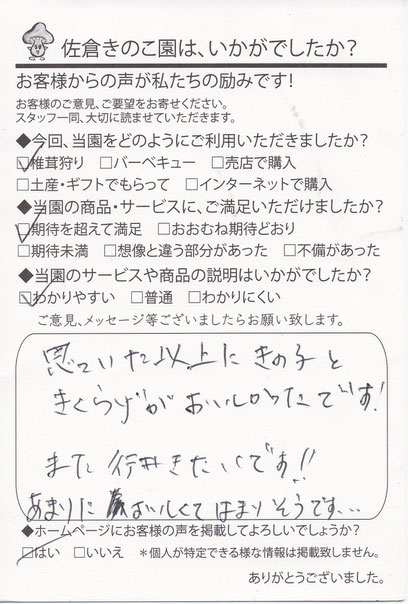 佐倉きのこ園は、いかがでしたか？
お客様からの声が私たちの励みです！
お客様のご意見、ご要望をお寄せください。
スタッフ一同、大切に読ませていただきます。
◆今回、当園をどのようにご利用いただきましたか？
☑椎茸狩り □バーベキュー □売店で購入
□土産・ギフトでもらって □インターネットで購入
◆当園の商品・サービスに、ご満足いただけましたか？
☑期待を超えて満足 □おおむね期待どおり
□期待未満 □想像と違う部分があった □不備があった
◆当園のサービスや商品の説明はいかがでしたか？
☑わかりやすい □普通 □わかりにくい
ご意見、メッセージ等ございましたらお願い致します。
思っていた以上にきの子と
きくらげがおいしかったです！
また行きたいです!!
あまりにおいしくてはまりそうです...
◆ホームページにお客様の声を掲載してよろしいでしょうか？
☑はい □いいえ ＊個人が特定できる様な情報は掲載致しません。
ありがとうございました。